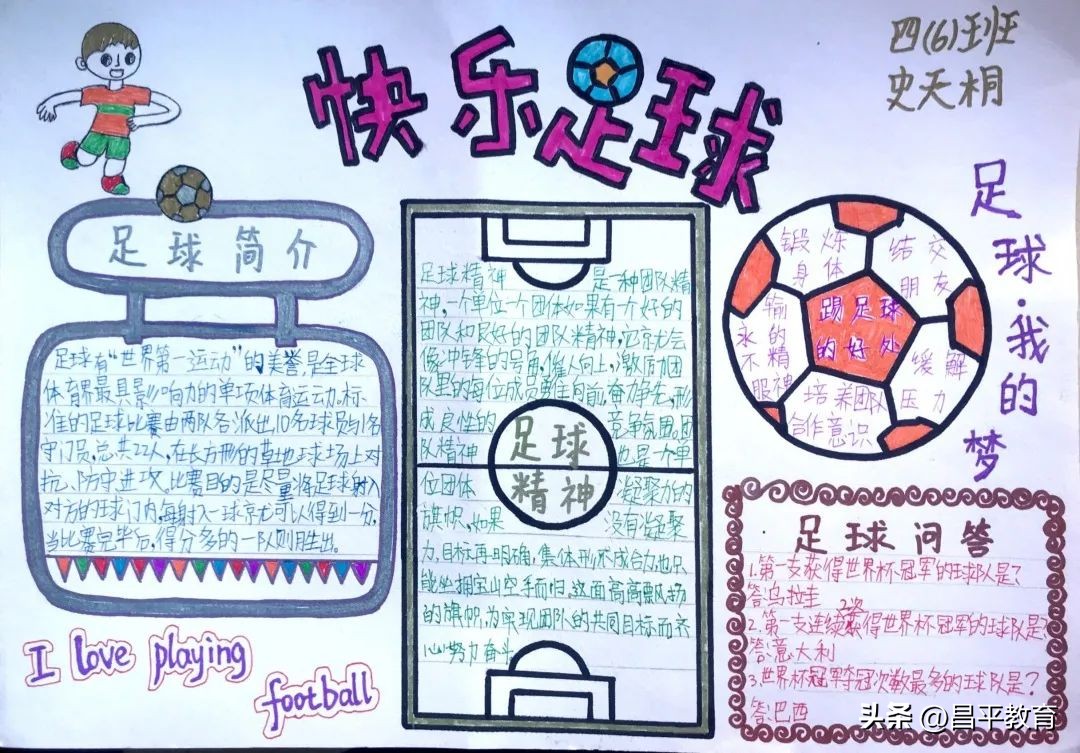 快乐足球
四(6)班
史天桐
足球·我的梦
足球简介
足球有“世界第一运动”的美誉,是全球
体育界最具影响力的单项体育运动.标
准的足球比赛由两队各派出10名球员与1名
守门员,总共22人,在长方形的草地球场上对
抗、防守进攻。比赛目的是尽量将足球射入
对方的球门内,每射入一球就可以得到一分,
当比赛完毕后,得分多的一队则胜出。
I love playing
football
足球精神 是一种团队精
神,一个单位一个团体如果有一个好的
团队和良好的团队精神,它就会
像冲锋的号角,催人向上,激励团
队里的每位成员勇往向前,奋力争先,形
成良性的 竞争氛围。团
队精神 也是一个单
位团体 凝聚力的
旗帜,如果 没有凝聚
力,目标再明确,集体形不成合力,也只
能坐拥宝山空手而归,这面高高飘扬
的旗帜,为实现团队的共同目标而齐
心努力奋斗
足球
精神
踢足球
的好处
锻炼
身体
结交
朋友
永不服输的精神
缓解
压力
培养团队
合作意识
足球问答
1.第一支获得世界杯冠军的球队是?
答:乌拉圭
2.第一支连续2次获得世界杯冠军的球队是?
答:意大利
3.世界杯冠军夺冠次数最多的球队是?
答:巴西
头条 @昌平教育